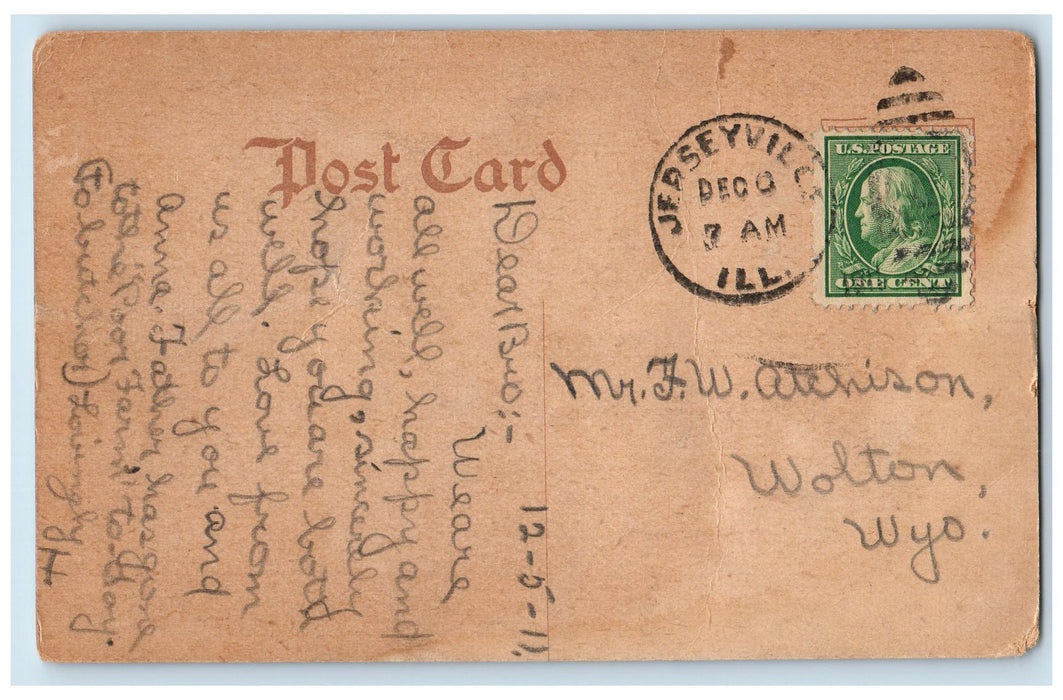 Post Card
JERSEYVILLE
DEC 6
7 AM
ILL.
U.S. POSTAGE
ONE CENT
12-5-11,
Dear Bro:-
We are
all well, happy and
working, sincerely
hope you are both
well. Love from
us all to you and
Anna. Father has gone
to the "Poor Farm" to-day.
(to butcher) Lovingly H
Mr. F. W. Atchison,
Wolton,
Wyo.